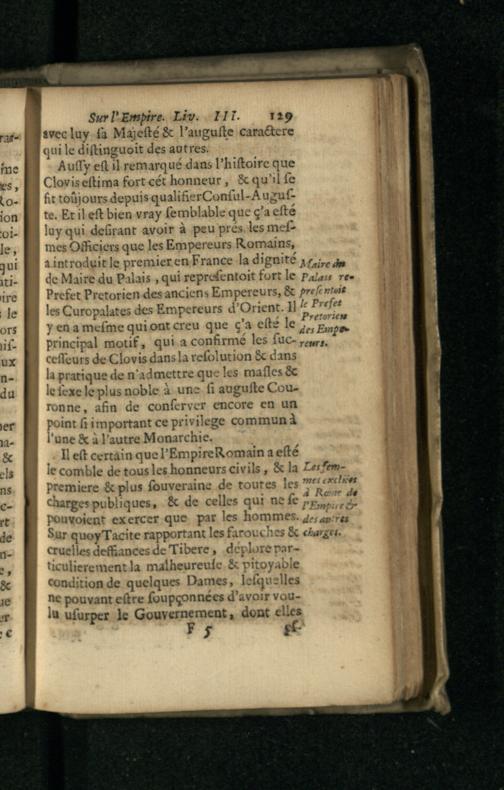 Sur l'Empire. Liv. III. 129
avec luy ſa Majeſté & l'auguſte caractere
qui le diſtinguoit des autres.
Auſſy eſt il remarqué dans l'hiſtoire que
Clovis eſtima fort cét honneur, & qu'il ſe
fit toûjours depuis qualifier Conſul-Auguſ-
te. Et il eſt bien vray ſemblable que ç'a eſté
luy qui deſirant avoir à peu prés les meſ-
mes Officiers que les Empereurs Romains,
a introduit le premier en France la dignité
de Maire du Palais, qui repreſentoit fort le
Prefet Pretorien des anciens Empereurs, &
les Curopalates des Empereurs d'Orient. Il
y en a meſme qui ont creu que ç'a eſté le
principal motif, qui a confirmé les ſuc-
ceſſeurs de Clovis dans la reſolution & dans
la pratique de n'admettre que les maſles &
le ſexe le plus noble à une ſi auguſte Cou-
ronne, afin de conſerver encore en un
point ſi important ce privilege commun à
l'une & à l'autre Monarchie.
Il eſt certain que l'Empire Romain a eſté
le comble de tous les honneurs civils, & la
premiere & plus ſouveraine de toutes les
charges publiques, & de celles qui ne ſe
pouvoient exercer que par les hommes.
Sur quoy Tacite rapportant les farouches &
cruelles deffiances de Tibere, déplore par-
ticulierement la malheureuſe & pitoyable
condition de quelques Dames, leſquelles
ne pouvant eſtre ſoupçonnées d'avoir vou-
lu uſurper le Gouvernement, dont elles
F 5 eſ-
Maire du
Palais re-
preſentoit
le Prefet
Pretorien
des Empe-
reurs.
Les fem-
mes excluſes
à Rome de
l'Empire &
des autres
charges.